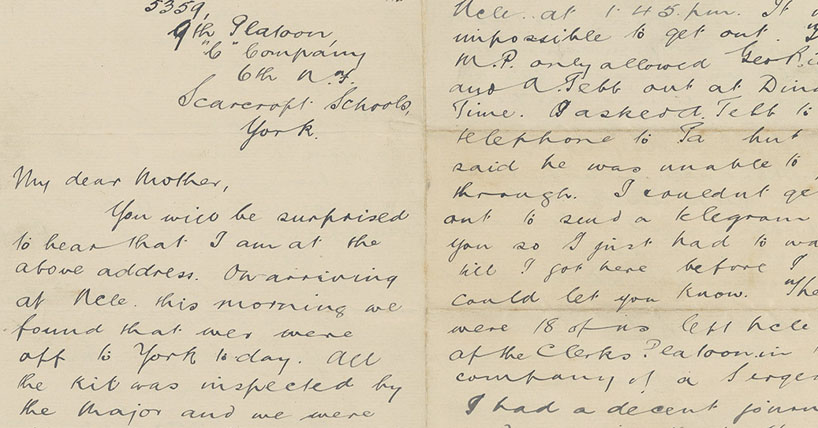 5359,
9th Platoon
"C" Company
6th N.F.
Scarcroft Schools,
York.
My dear Mother,
You will be surprised
to hear that I am at the
above address. On arriving
at Ncle. this morning we
found that wer were
off to York to day. All
the kit was inspected by
the Major and we were
Ncle. at 1.45 p.m. It
impossible to get out.
M.P. only allowed Geo.
and A. Tebb out at
Time. I asked A. Tebb to
telephone to Pa but
said he was unable to
through. I couldnt
out to send a telegram
you so I just had to
till I got here before I
could let you know. The
were 18 of us left Ncle
at the Clerks Platoon in
company of a
I had a decent